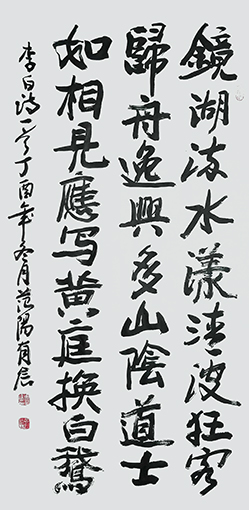 鏡湖流水漾清波狂客
歸舟逸興多山陰道士
如相見應写黄庭換白鵝
李白诗一首丁酉年冬月范陽